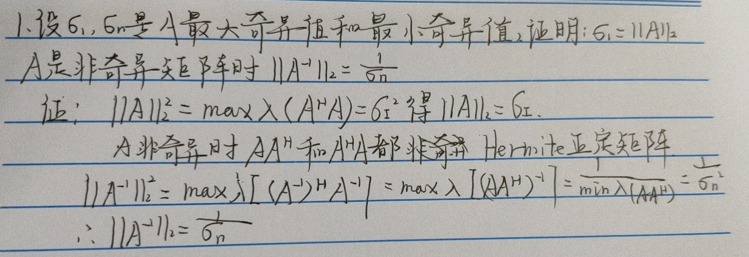 1.设σ₁,σn是A最大奇异值和最小奇异值,证明:σ₁=||A||₂
A是非奇异矩阵时 ||A⁻¹||₂=1/σn
证: ||A||₂²=max λ(AᴴA)=σ₁² 得||A||₂=σ₁.
A非奇异时 AAᴴ和AᴴA都非奇异 Hermite正定矩阵
||A⁻¹||₂²=max λ[(A⁻¹)ᴴA⁻¹]=max λ[(AAᴴ)⁻¹]=1/min λ(AAᴴ)=1/σn²
∴ ||A⁻¹||₂=1/σn